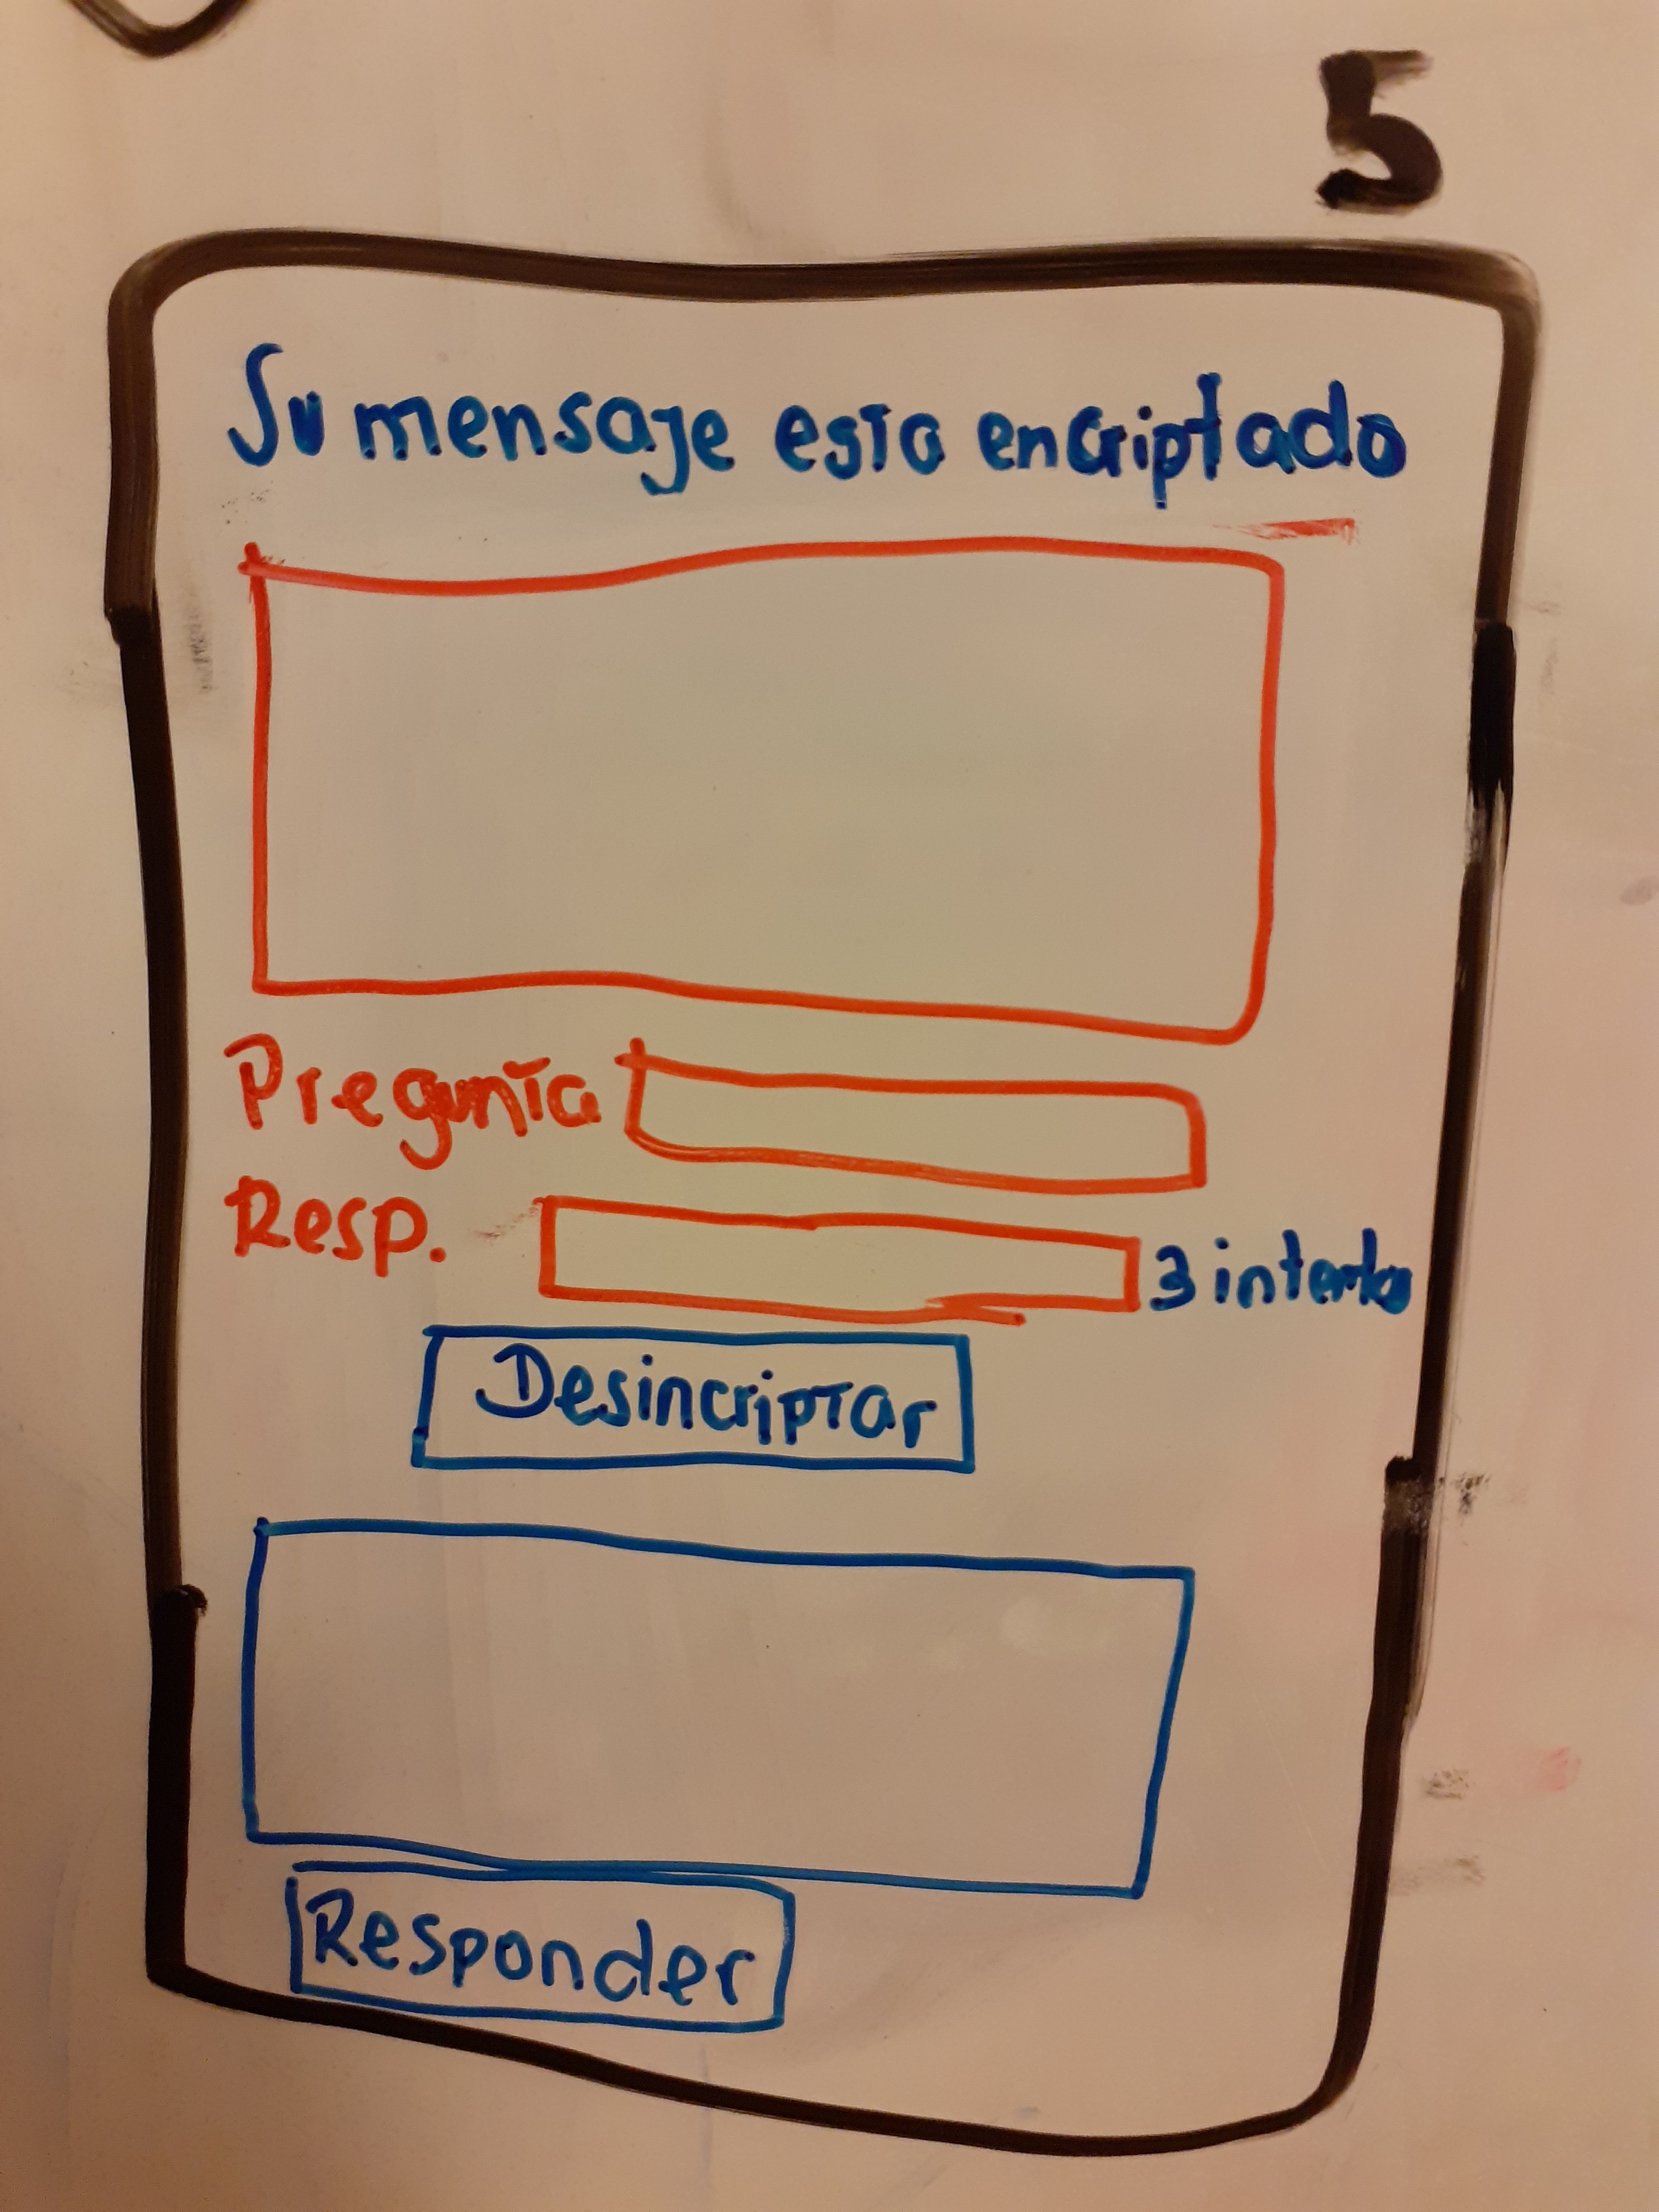 5
Su mensaje esta encriptado
Pregunta
Resp.
3 intentos
Desincriptar
Responder